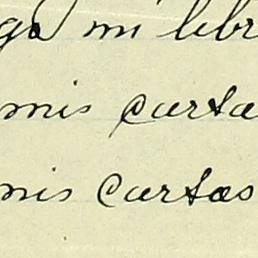 ga mi libr
mis carta
mis cartas